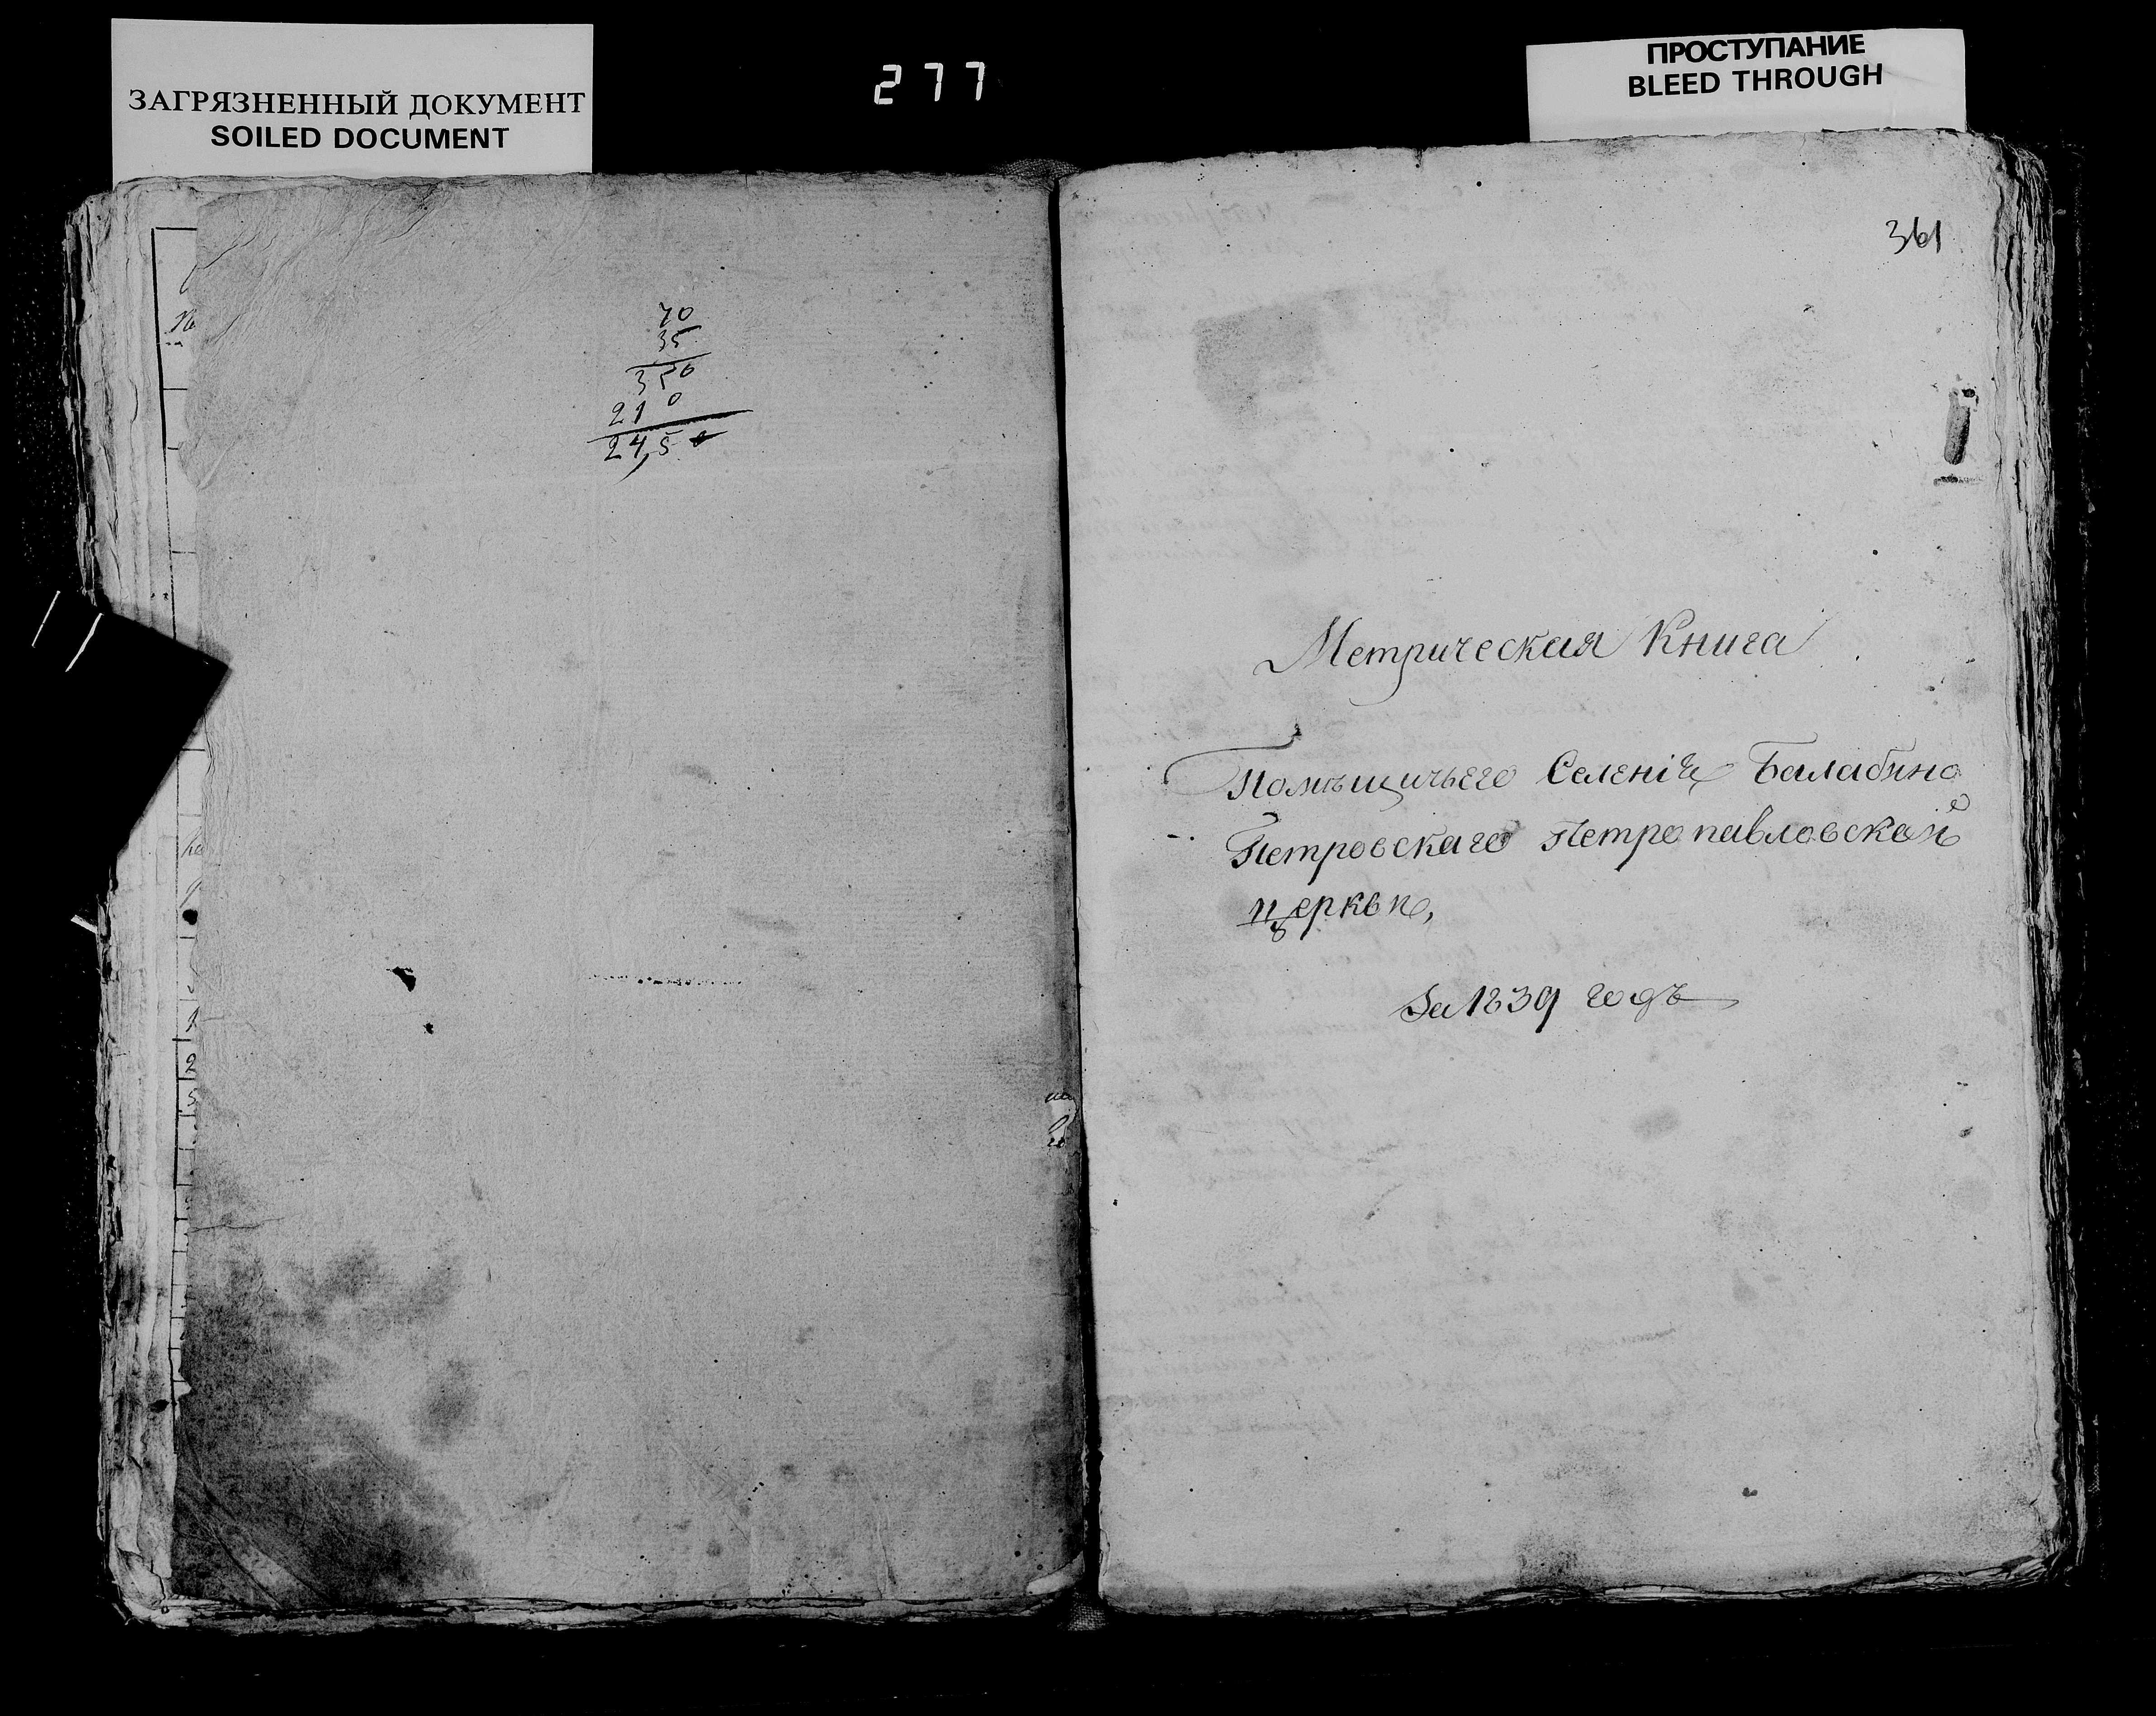 ЗАГРЯЗНЕННЫЙ ДОКУМЕНТ
SOILED DOCUMENT
277
ПРОСТУПАНИЕ
BLEED THROUGH
70
35
350
210
2450
361
Метрическая Книга
Помѣщичьего Селенія Балабино
Петровскаго Петропавловской
церкви,
За 1839 годъ